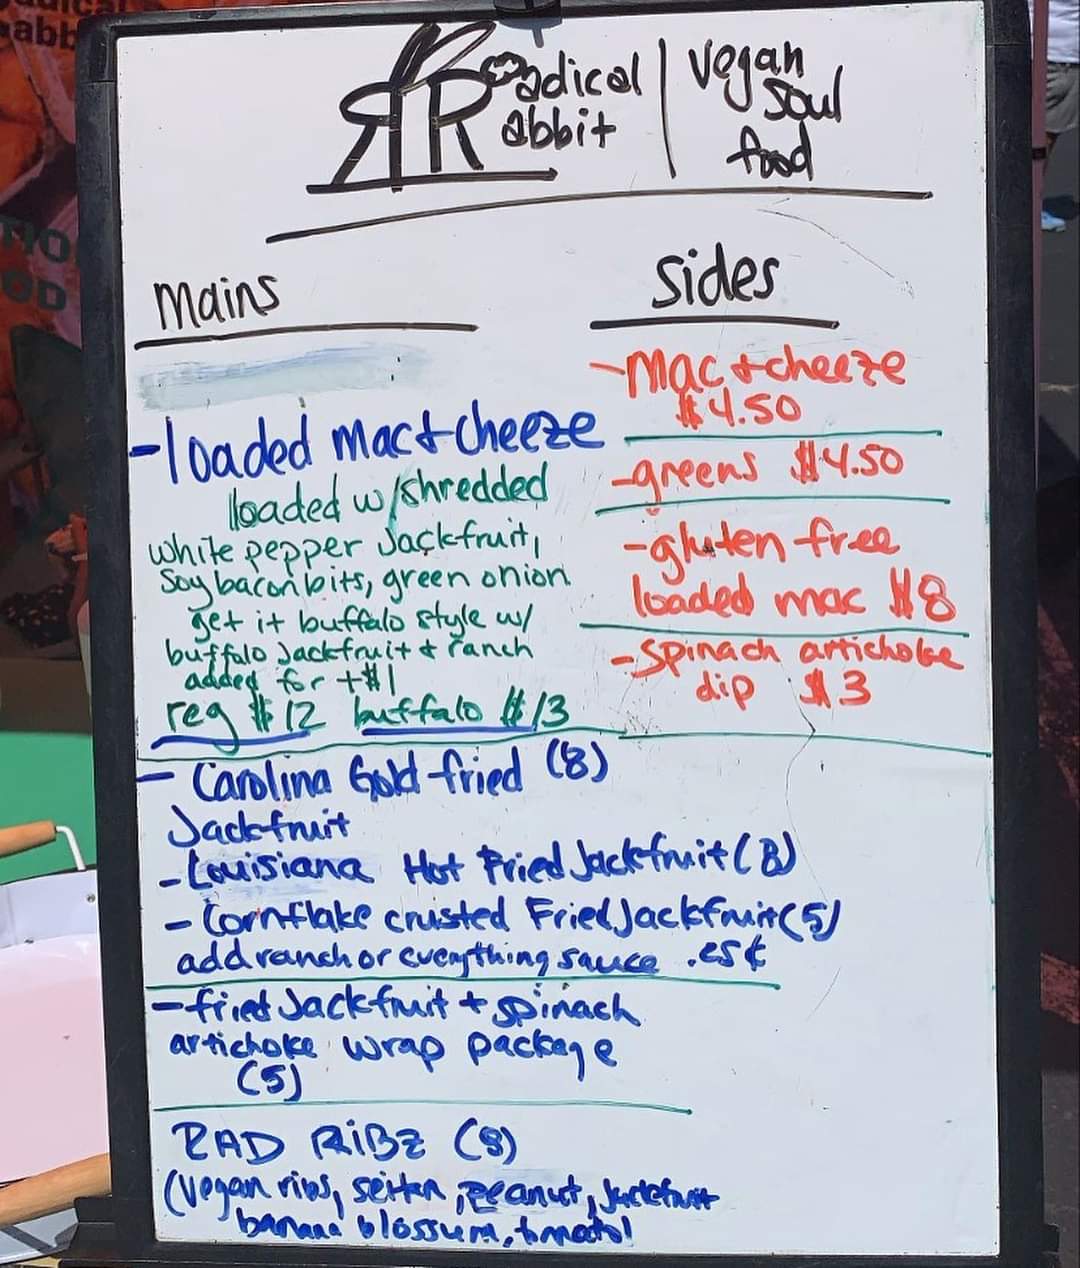 Radical
Rabbit
vegan
soul
food
mains
- loaded mac + cheeze
loaded w/shredded
white pepper Jackfruit,
Soy bacon bits, green onion
get it buffalo style w/
buffalo Jackfruit + ranch
added for +$1
reg $12 buffalo $13
- Carolina Gold fried (8)
Jackfruit
- Louisiana Hot Fried Jackfruit (8)
- Cornflake crusted Fried Jackfruit (5)
add ranch or everything sauce
- fried Jackfruit + spinach
artichoke wrap package
(5)
RAD RiBz (8)
(vegan ribs, seitan, peanut, jackfruit
banana blossum, tomato)
sides
- Mac + cheeze
$4.50
- greens $4.50
- gluten free
loaded mac $8
- Spinach artichoke
dip $3